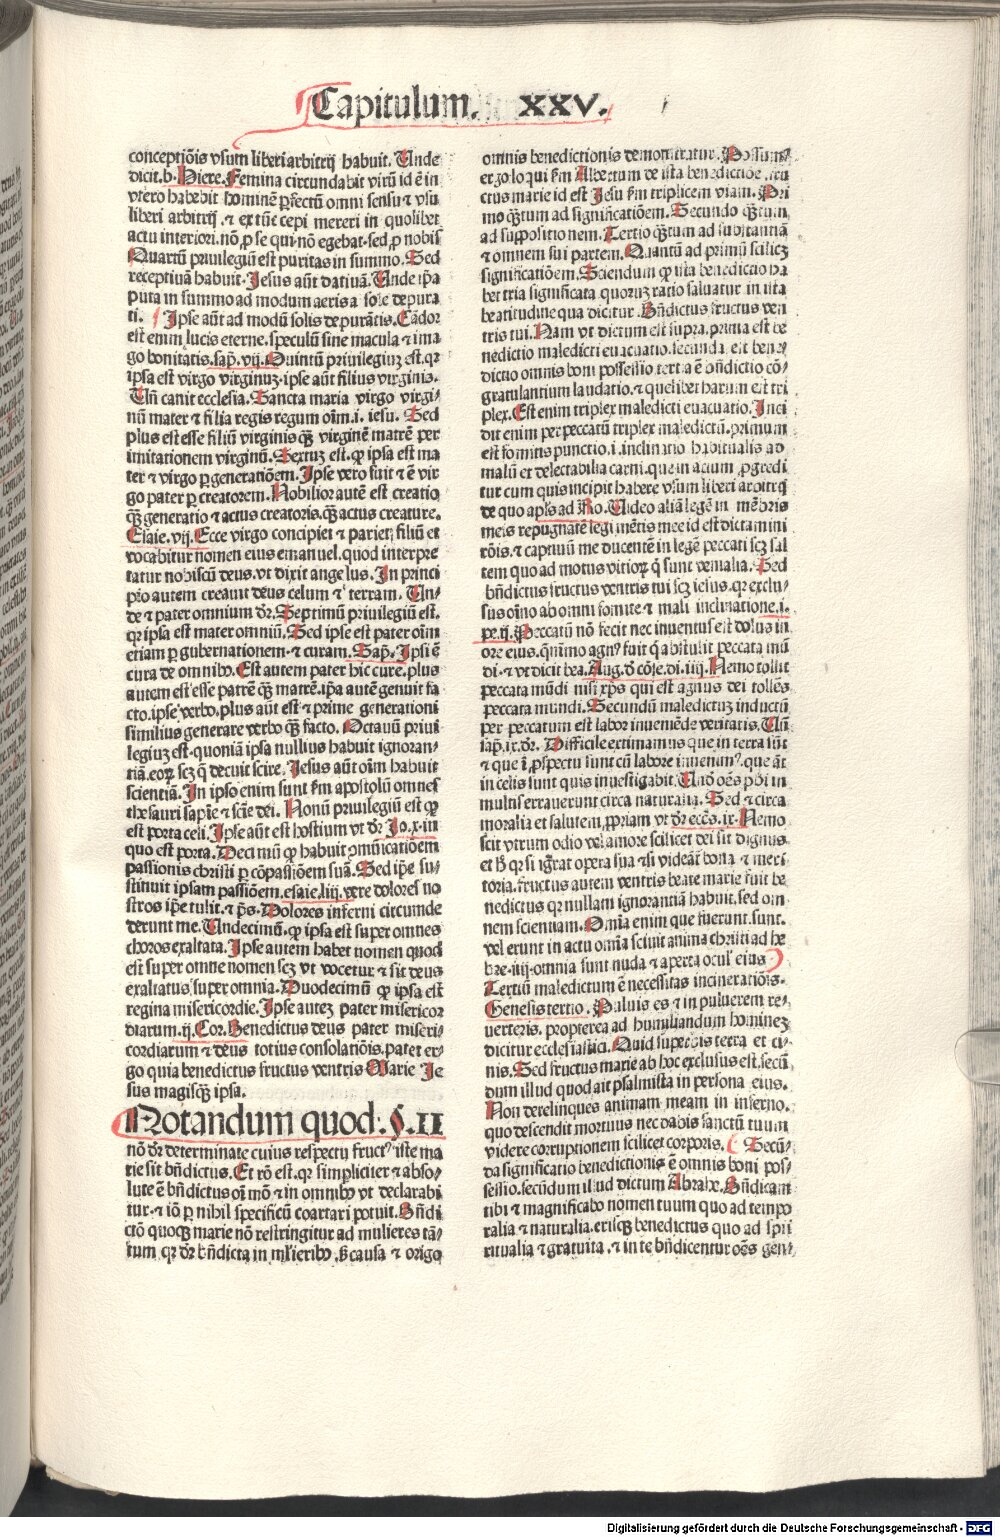 Capitulum. XXV.
conceptiõis vsum liberi arbitrij habuit. Unde
dicit.b.Hiere.Femina circundabit virũ id ẽ in
vtero habebit hominẽ ꝑfectũ omni sensu ⁊ vsu
liberi arbitrij .⁊ ex tũc cepi mereri in quolibet
actu interiori.nõ ꝓ se qui nõ egebat.sed ꝓ nobis
Quartũ priuilegiũ est puritas in summo. Sed
receptiuã habuit. Jesus aũt datiuã. Unde ip̃a
puta in summo ad modum aeris a sole depura
ti. Jpse aũt ad modũ solis depurãtis. Cãdor
est enim lucis eterne.speculũ sine macula ⁊ ima
go bonitatis.sap̃. vij. Quintũ priuilegiuꝫ est.qꝛ
ipsa est virgo virginuꝫ.ipse aũt filius virginis.
Uñ canit ecclesia. Sancta maria virgo virgi⸗
nũ mater ⁊ filia regis regum oĩm.i. iesu. Sed
plus est esse filiũ virginis qꝫ̃ virginẽ matrẽ per
imitationem virginũ. Sextuꝫ est.ꝙ ipsa est ma
ter ⁊ virgo ꝑ generatiõem. Jpse vero fuit ⁊ ẽ vir
go pater ꝑ creatorem. Nobilior autẽ est creatio
qꝫ̃ generatio ⁊ actus creatoris.qꝫ̃ actus creature.
Esaie.vij. Ecce virgo concipiet ⁊ pariet filiũ et
vocabitur nomen eius emanuel.quod interpre
tatur nobiscũ deus.vt dixit angelus. Jn princi
pio autem creauit deus celum ⁊ terram. Un⸗
de ⁊ pater omnium dr̃. Septimũ priuilegiũ est.
qꝛ ipsa est mater omniũ. Sed ipse est pater oĩm
etiam ꝑ gubernationem.⁊ curam. Sap̃. Jpsi ẽ
cura de omnibꝰ. Est autem pater hic cure.plus
autem est esse patrẽ qꝫ̃ matrẽ.ip̃a autẽ genuit fa
cto.ipse verbo.plus aũt est ⁊ prime generationi
similius generare verbo qꝫ̃ facto. Octauũ priui
legiuꝫ est.quoniã ipsa nullius habuit ignoran⸗
tiã.eoꝝ scꝫ q̃ decuit scire. Jesus aũt oĩm habuit
scientiã. Jn ipso enim sunt fm apostolũ omnes
thesauri sapie̅ ⁊ scie̅ dei. Nonũ priuilegiũ est ꝙ
est porta celi. Jpse aũt est hostium vt dr̃ Jo.x.in
quo est porta. Decimũ ꝙ habuit ꝯmunicatiõem
passionis christi ꝑ cõpassiõem suã. Sed ip̃e su⸗
stinuit ipsam passiõem.esaie.liij. vere dolores no
stros ip̃e tulit.⁊ p̃s. Dolores inferni circumde
derunt me. Undecimũ.ꝙ ipsa est super omnes
choros exaltata. Jpse autem habet nomen quod
est super omne nomen scꝫ vt vocetur ⁊ sit deus
exaltatus super omnia. Duodecimũ ꝙ ipsa est
regina misericordie. Jpse auteꝫ pater misericor
diarum.ij.Cor. Benedictus deus pater miseri⸗
cordiarum ⁊ deus totius consolatiõis.pater er⸗
go quia benedictus fructus ventris Marie Je
sus magisqꝫ̃ ipsa.
Notandum quod. §.II
nõ dr̃ determinate cuius respectu fructꝰ iste ma
rie sit bñdictus. Et rõ est.qꝛ simpliciter ⁊ abso⸗
lute ẽ bñdictus oĩ mõ ⁊ in omnibꝰ vt declarabi
tur.⁊ iõ ꝑ nihil specificũ coartari potuit. Bñdi
ctõ quoqꝫ marie nõ restringitur ad mulieres tã⸗
tum qꝛ dr̃ bñdicta in mĩeribꝰ. ß causa ⁊ origo
omnis benedictionis demonstratur. Possumꝰ
ergo loqui fm Albertum de ista benedictiõe fru
ctus marie id est Jesu fm triplicem viam. Pri
mo qꝫ̃tum ad significatiõem. Secundo qꝫ̃tum
ad suppositionem. Tertio qꝫ̃tum ad substantiã
⁊ omnem sui partem. Quantũ ad primũ scilicꝫ
significatiõem. Sciendum ꝙ ista benedictio ha
bet tria significata quoruꝫ ratio saluatur in ista
beatitudine qua dicitur. Bñdictus fructus ven
tris tui. Nam vt dictum est supra.prima est be
nedictio maledicti euacuatio.secunda est bene⸗
dictio omnis boni possessio tertia ẽ bñdictio cõ⸗
gratulantium laudatio.⁊ quelibet harum est tri
plex. Est enim triplex maledicti euacuatio. Jnci
dit enim per peccatũ triplex maledictũ.primum
est fomitis punctio.i.inclinatio habitualis ad
malũ et delectabilia carni.que in actum ꝓgredi
tur cum quis incipit habere vsum liberi arbitrij
de quo apl̃s ad Ro. Uideo aliã legẽ in mẽbris
meis repugnãtẽ legi mẽtis mee id est dictamini
rõis.⁊ captiuũ me ducentẽ in legẽ peccati scꝫ sal
tem quo ad motus vitioꝝ q̃ sunt venialia. Sed
bñdictus fructus ventris tui scꝫ iesus.qꝛ exclu⸗
sus oĩno ab omni fomite ⁊ mali inclinatione.i.
pe.ij. Peccatũ nõ fecit nec inuentus est dolus in
ore eius.quĩmo agnꝰ fuit q̃ abstulit peccata mũ
di.⁊ vt dicit bea. Aug. ð cõse.di.iiij. Nemo tollit
peccata mũdi nisi xp̃s qui est agnus dei tollẽs
peccata mundi. Secundũ maledictuꝫ inductũ
per peccatum est labor inueniẽde veritatis. Uñ
sap̃.ix.dr̃. Difficile estimamus que in terra sũt
⁊ que ĩ ꝓspectu sunt cũ labore inuenimꝰ.que aũt
in celis sunt quis inuestigabit. Unð oẽs phi in
multis errauerunt circa naturalia. Sed ⁊ circa
moralia et salutem ꝓpriam vt dr̃ ecc̃s.ix. Nemo
scit vtrum odio vel amore scilicet dei sit dignus
et h̃ qꝛ si igr̃at opera sua ⁊ si videãt bona ⁊ meri
toria.fructus autem ventris beate marie fuit be
nedictus qꝛ nullam ignorantiã habuit.sed om
nem scientiam. Om̃ia enim que fuerunt.sunt.
vel erunt in actu om̃ia sciuit anima christi ad he
bre.iiij.omnia sunt nuda ⁊ aperta oculꝭ eius
Tertiũ maledictum ẽ necessitas incineratiõis.
Genesis tertio. Puluis es ⁊ in puluerem re⸗
uerteris. propterea ad humiliandum homineꝫ
dicitur ecclesiastici. Quid superbis terra et ci⸗
nis. Sed fructus marie ab hoc exclusus est.secũ
dum illud quod ait psalmista in persona eius.
Non derelinques animam meam in inferno.
quo descendit mortuus nec dabis sanctũ tuum
videre corruptionem scilicet corporis. Secũ⸗
da significatio benedictionis ẽ omnis boni pos⸗
sessio.secũdum illud dictum Abrahe. Bñdicam
tibi ⁊ magnificabo nomen tuum quo ad tempo
ralia ⁊ naturalia.erisqꝫ benedictus quo ad spũ
ritualia ⁊ gratuita.⁊ in te bñdicentur oẽs gen⸗
Digitalisierung gefördert durch die Deutsche Forschungsgemeinschaft - DFG